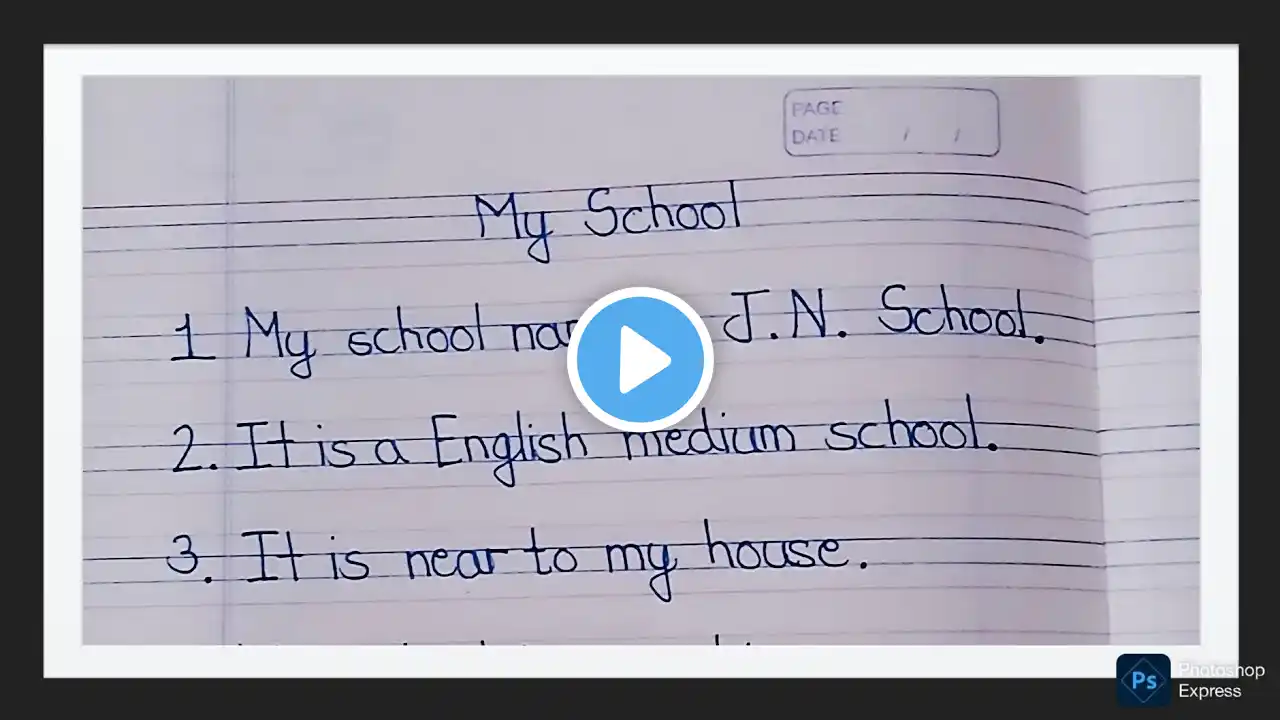 PAGE
DATE / /
My School
1 My school J.N. School.
2. It is a English medium school.
3. It is near to my house.
Ps Photoshop
Express